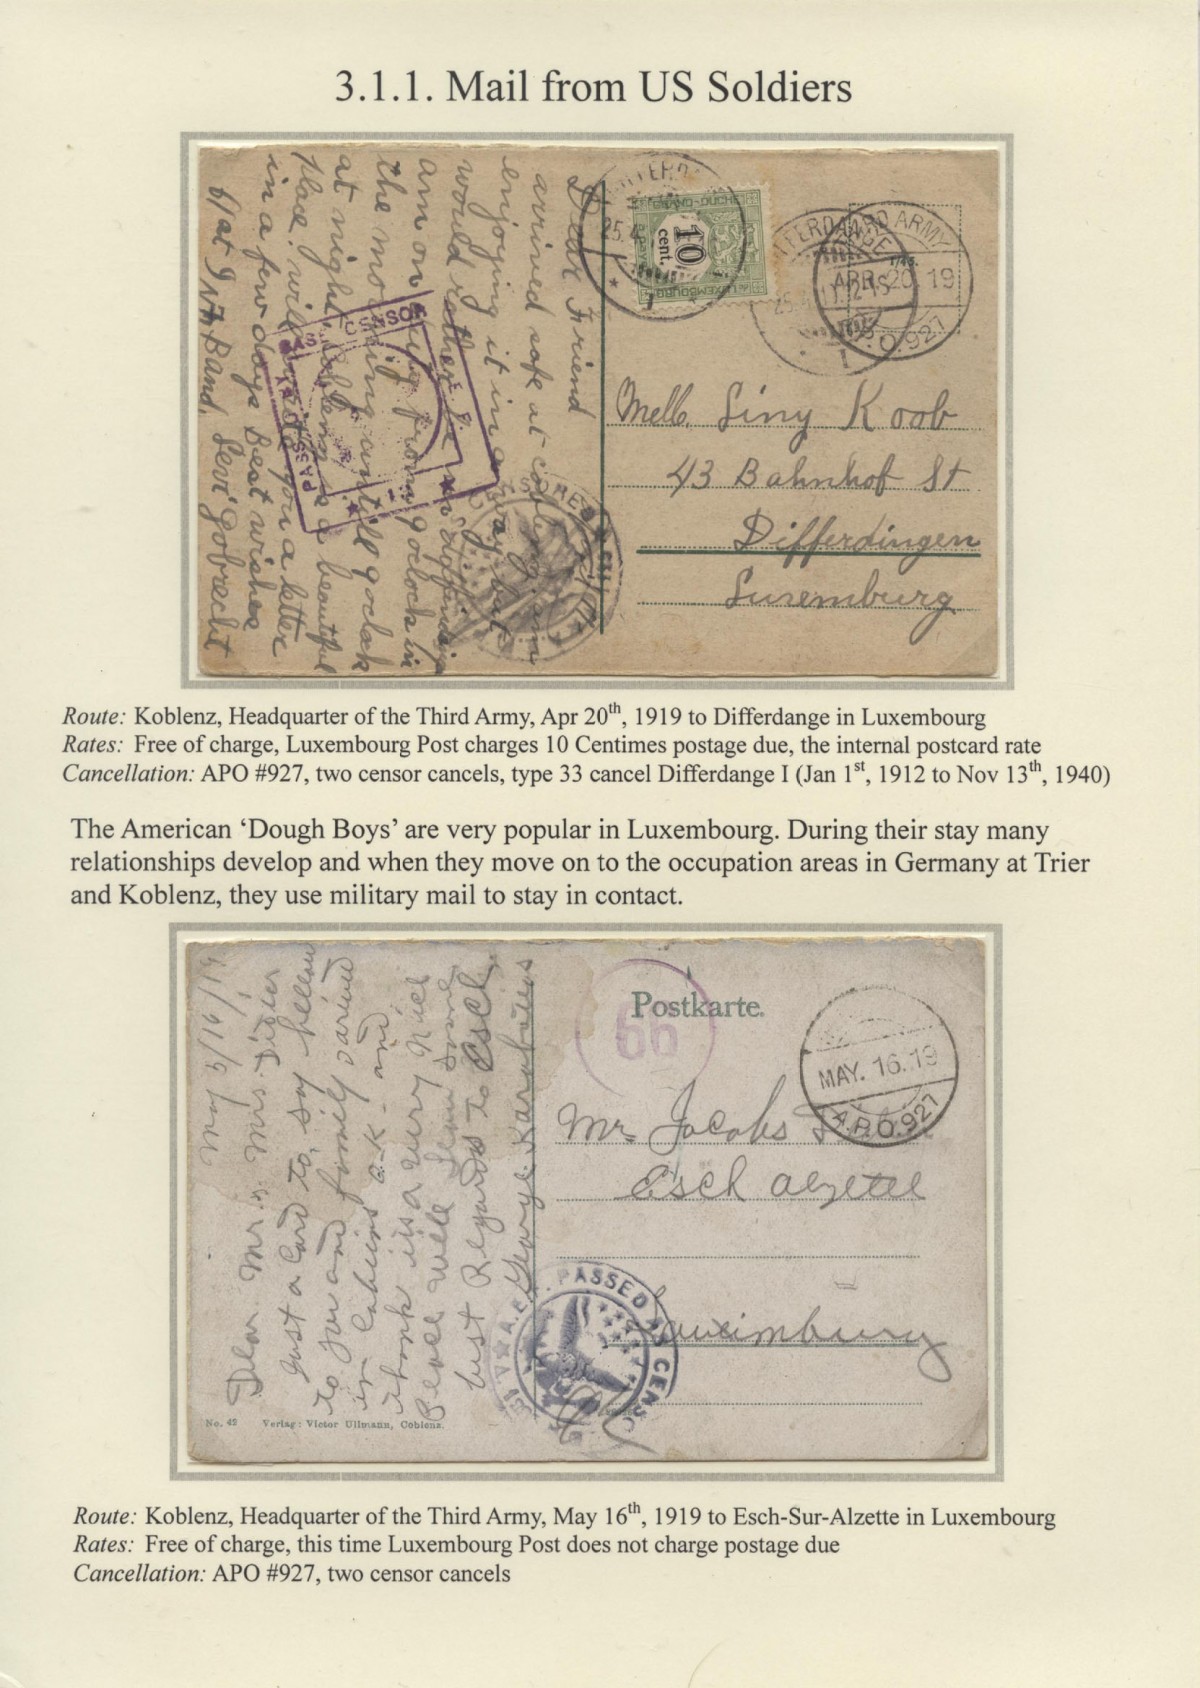 3.1.1. Mail from US Soldiers
Dear Friend
arrived safe at coblenz, am
enjoying it in a way but
would rather be in differding
am on from 9 oclock in
the morning untill 9 oclock
at night. Coblenz is a beautiful
place. will write you a letter
in a few days Best wishes
Band. Levi Gobrecht
10
cent.
25.4
3RD ARMY
APR 20 19
A.P.O. 927
BASE CENSOR
A.E.F.
PASSED
Melle. Liny Koob
43 Bahnhof St
Differdingen
Luxemburg
Route: Koblenz, Headquarter of the Third Army, Apr 20th, 1919 to Differdange in Luxembourg
Rates: Free of charge, Luxembourg Post charges 10 Centimes postage due, the internal postcard rate
Cancellation: APO #927, two censor cancels, type 33 cancel Differdange I (Jan 1st, 1912 to Nov 13th, 1940)
The American ‘Dough Boys’ are very popular in Luxembourg. During their stay many
relationships develop and when they move on to the occupation areas in Germany at Trier
and Koblenz, they use military mail to stay in contact.
May 16/19
Dear Mr. & Mrs.
Just a Card to, say hellow
to you and family
in O-K- and
think its a very Nice
Place well
best Regards to Esch
George
No. 42 Verlag: Victor Ullmann, Coblenz.
Postkarte.
66
MAY. 16. 19
A.P.O. 927
Mr. Jacobs
Esch alzette
Luxemburg
A.E.F. PASSED AS CENSORED
Route: Koblenz, Headquarter of the Third Army, May 16th, 1919 to Esch-Sur-Alzette in Luxembourg
Rates: Free of charge, this time Luxembourg Post does not charge postage due
Cancellation: APO #927, two censor cancels